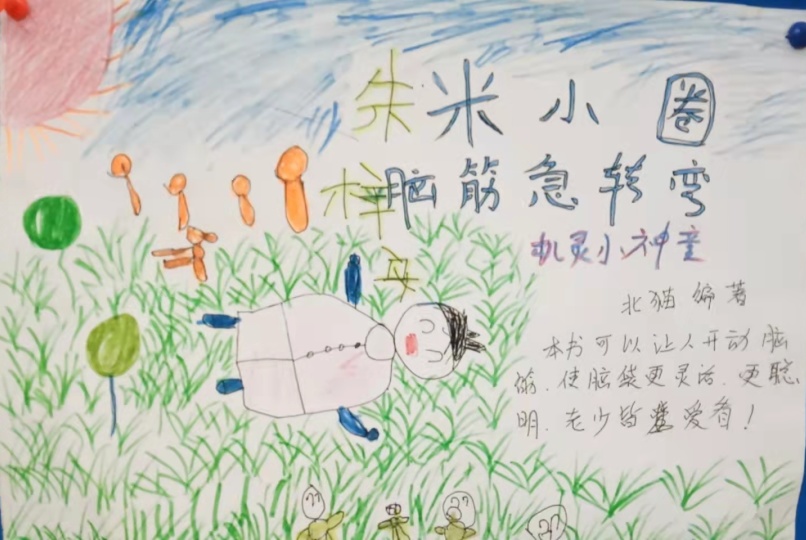 朱梓
米小圈
脑筋急转弯
机灵小神童
北猫 编著
本书可以让人开动脑
筋.使脑袋更灵活.更聪
明.老少皆爱看！